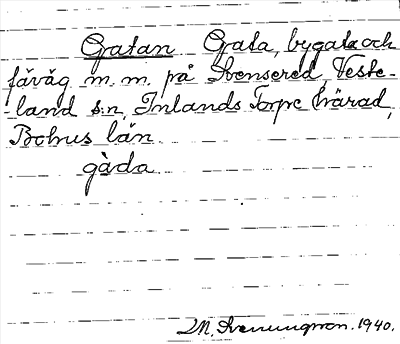 Gatan Gata, bygata och
fäväg m. m. på Svensered, Väste-
land s:n, Inlands Torpe härad,
Bohus län.
gàda
M. Svenungsson. 1940.